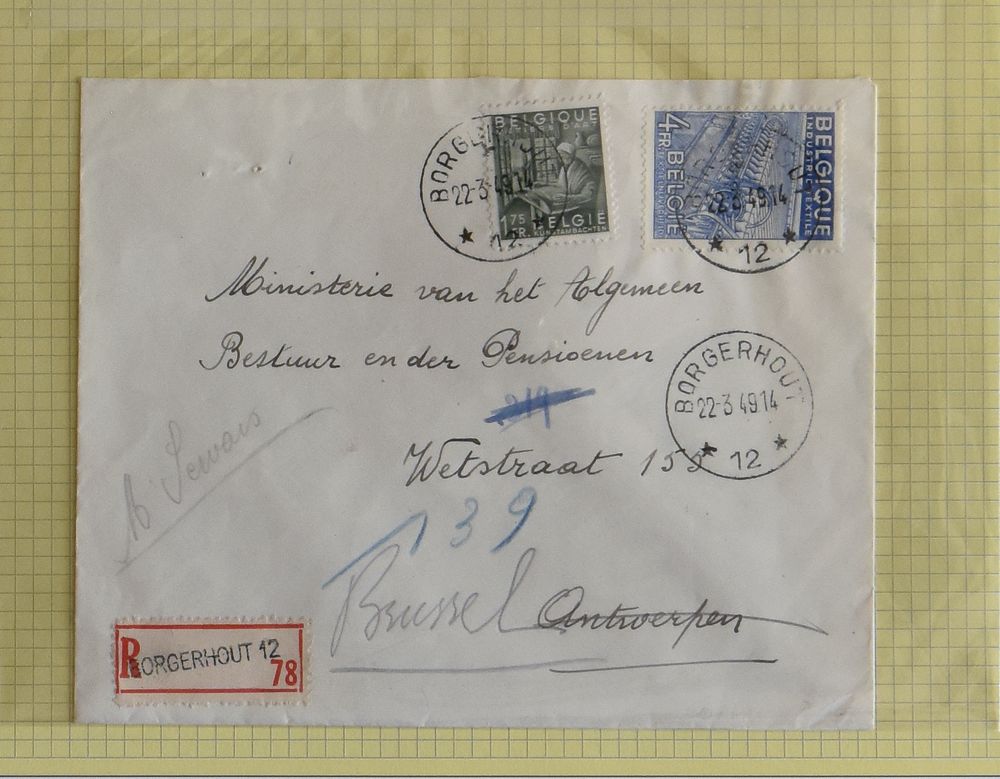 BELGIQUE
1.75 FR. BELGIE
KUNSTAMBACHTEN
BORGERHOUT
22-3 49 14
12
BELGIQUE
INDUSTRIE TEXTILE
4 FR BELGIE
22-3 49 14
12
Ministerie van het Algemeen
Bestuur en der Pensioenen
219
BORGERHOUT
22-3 49 14
12
Wetstraat 155
139
Brussel Antwerpen
R BORGERHOUT 12
78